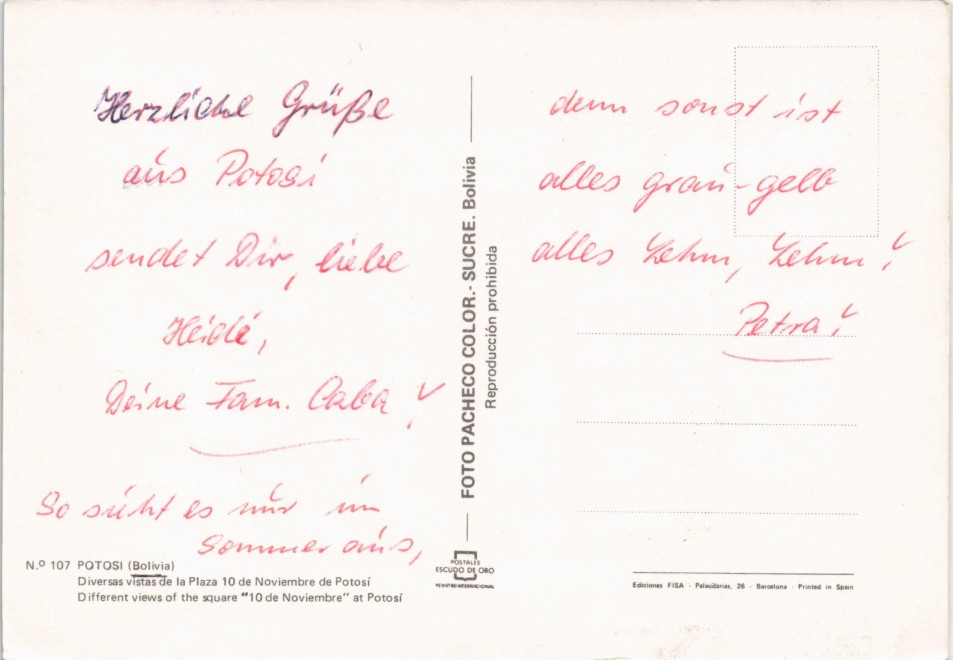 Herzliche Grüße
aus Potosi
sendet Dir, liebe
Heidi,
Deine Fam. Caba!
So sieht es nur im
Sommer aus,
N.º 107 POTOSI (Bolivia)
Diversas vistas de la Plaza 10 de Noviembre de Potosí
Different views of the square "10 de Noviembre" at Potosí
FOTO PACHECO COLOR.- SUCRE. Bolivia
Reproducción prohibida
POSTALES
ESCUDO DE ORO
REGISTRO INTERNACIONAL
denn sonst ist
alles grau-gelb
alles Lehm, Lehm!
Petra!
Ediciones FISA - Palaudarias, 26 - Barcelona - Printed in Spain